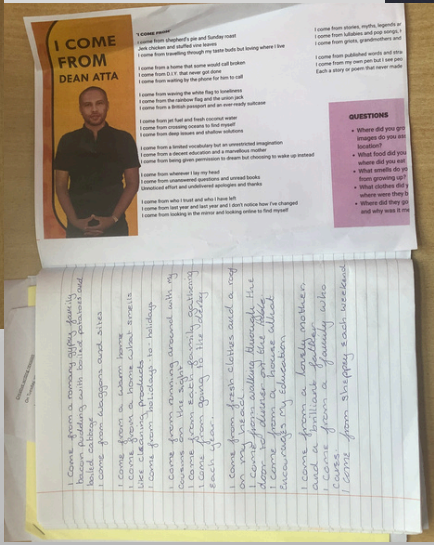 I COME
FROM
DEAN ATTA
"I COME FROM"
I come from shepherd's pie and Sunday roast
Jerk chicken and stuffed vine leaves
I come from travelling through my taste buds but loving where I live
I come from a home that some would call broken
I come from D.I.Y. that never got done
I come from waiting by the phone for him to call
I come from waving the white flag to loneliness
I come from the rainbow flag and the union jack
I come from a British passport and an ever-ready suitcase
I come from jet fuel and fresh coconut water
I come from crossing oceans to find myself
I come from deep issues and shallow solutions
I come from a limited vocabulary but an unrestricted imagination
I come from a decent education and a marvellous mother
I come from being given permission to dream but choosing to wake up instead
I come from wherever I lay my head
I come from unanswered questions and unread books
Unnoticed effort and undelivered apologies and thanks
I come from who I trust and who I have left
I come from last year and last year and I don't notice how I've changed
I come from looking in the mirror and looking online to find myself
I come from stories, myths, legends
I come from lullabies and pop songs,
I come from griots, grandmothers and
I come from published words and
I come from my own pen but I see
Each a story or poem that never made
QUESTIONS
• Where did you
images do you
location?
• What food did you
where did you eat
• What smells do
from growing up?
• What clothes did
where were they
• Where did they go
and why was it
I come from a romany gypsy family
bacon pudding with boiled potatoes and
boiled cabbage
I come from waggons and sites
I come from a warm home
I come from a home what smells
like cleaning products
I come from holidays to holidays
I come from running around with my
cousins then
I come from each family gathering
I come from going to the Derby
each year
I come from fresh clothes and a roof
on my head
I come from walking through the
door to dinner on the table
I come from a house what
Encourages my Education
I come from a lovely mother
and a brilliant father
I come from a family who
cares
I come from sheppey each weekend